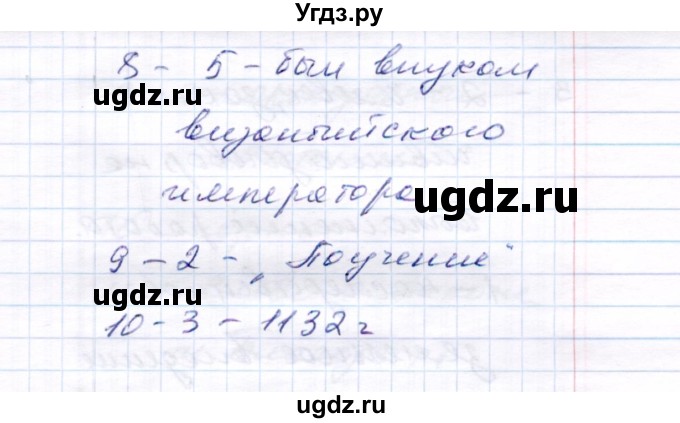 Угдз.ру
8 - 5 - был внуком
ugdz.ru
византийского
императора
ugdz.ru
9 - 2 - „Поучение"
ugdz.ru
10 - 3 - 1132 г
ugdz.ru